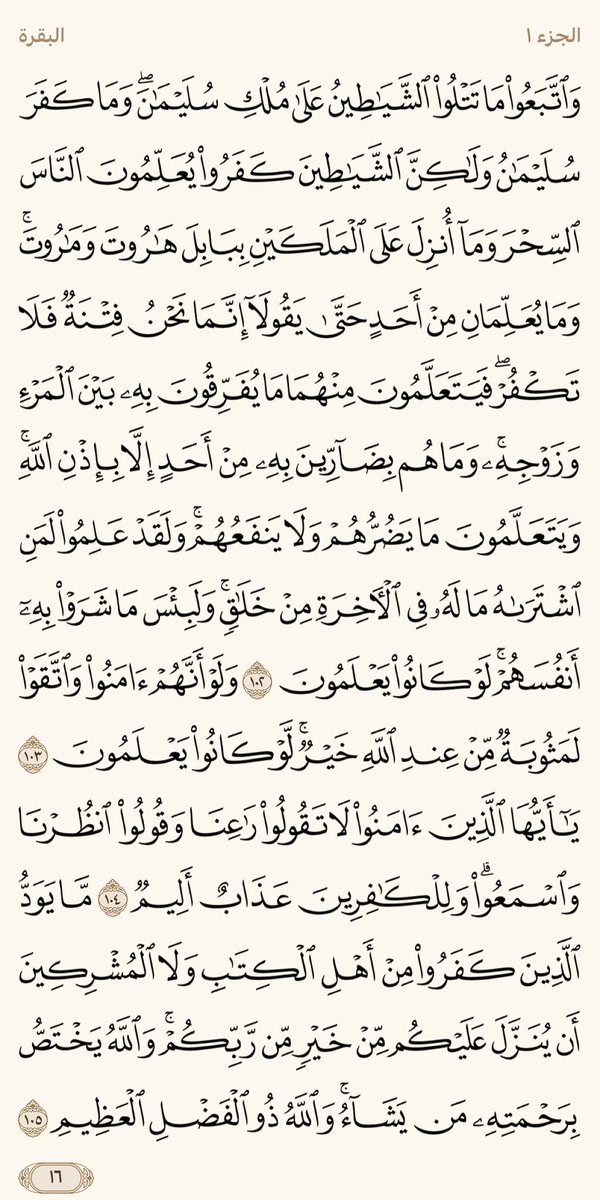 الجزء ١ البقرة
وَٱتَّبَعُوا۟ مَا تَتْلُوا۟ ٱلشَّيَـٰطِينُ عَلَىٰ مُلْكِ سُلَيْمَـٰنَ ۖ وَمَا كَفَرَ
سُلَيْمَـٰنُ وَلَـٰكِنَّ ٱلشَّيَـٰطِينَ كَفَرُوا۟ يُعَلِّمُونَ ٱلنَّاسَ
ٱلسِّحْرَ وَمَآ أُنزِلَ عَلَى ٱلْمَلَكَيْنِ بِبَابِلَ هَـٰرُوتَ وَمَـٰرُوتَ ۚ
وَمَا يُعَلِّمَانِ مِنْ أَحَدٍ حَتَّىٰ يَقُولَآ إِنَّمَا نَحْنُ فِتْنَةٌ فَلَا
تَكْفُرْ ۖ فَيَتَعَلَّمُونَ مِنْهُمَا مَا يُفَرِّقُونَ بِهِۦ بَيْنَ ٱلْمَرْءِ
وَزَوْجِهِۦ ۚ وَمَا هُم بِضَآرِّينَ بِهِۦ مِنْ أَحَدٍ إِلَّا بِإِذْنِ ٱللَّهِ ۚ
وَيَتَعَلَّمُونَ مَا يَضُرُّهُمْ وَلَا يَنفَعُهُمْ ۚ وَلَقَدْ عَلِمُوا۟ لَمَنِ
ٱشْتَرَىٰهُ مَا لَهُۥ فِى ٱلْـَٔاخِرَةِ مِنْ خَلَـٰقٍ ۚ وَلَبِئْسَ مَا شَرَوْا۟ بِهِۦٓ
أَنفُسَهُمْ ۚ لَوْ كَانُوا۟ يَعْلَمُونَ ١٠٢ وَلَوْ أَنَّهُمْ ءَامَنُوا۟ وَٱتَّقَوْا۟
لَمَثُوبَةٌ مِّنْ عِندِ ٱللَّهِ خَيْرٌ ۚ لَّوْ كَانُوا۟ يَعْلَمُونَ ١٠٣
يَـٰٓأَيُّهَا ٱلَّذِينَ ءَامَنُوا۟ لَا تَقُولُوا۟ رَٰعِنَا وَقُولُوا۟ ٱنظُرْنَا
وَٱسْمَعُوا۟ ۗ وَلِلْكَـٰفِرِينَ عَذَابٌ أَلِيمٌ ١٠٤ مَّا يَوَدُّ
ٱلَّذِينَ كَفَرُوا۟ مِنْ أَهْلِ ٱلْكِتَـٰبِ وَلَا ٱلْمُشْرِكِينَ
أَن يُنَزَّلَ عَلَيْكُم مِّنْ خَيْرٍ مِّن رَّبِّكُمْ ۚ وَٱللَّهُ يَخْتَصُّ
بِرَحْمَتِهِۦ مَن يَشَآءُ ۚ وَٱللَّهُ ذُو ٱلْفَضْلِ ٱلْعَظِيمِ ١٠٥
١٦